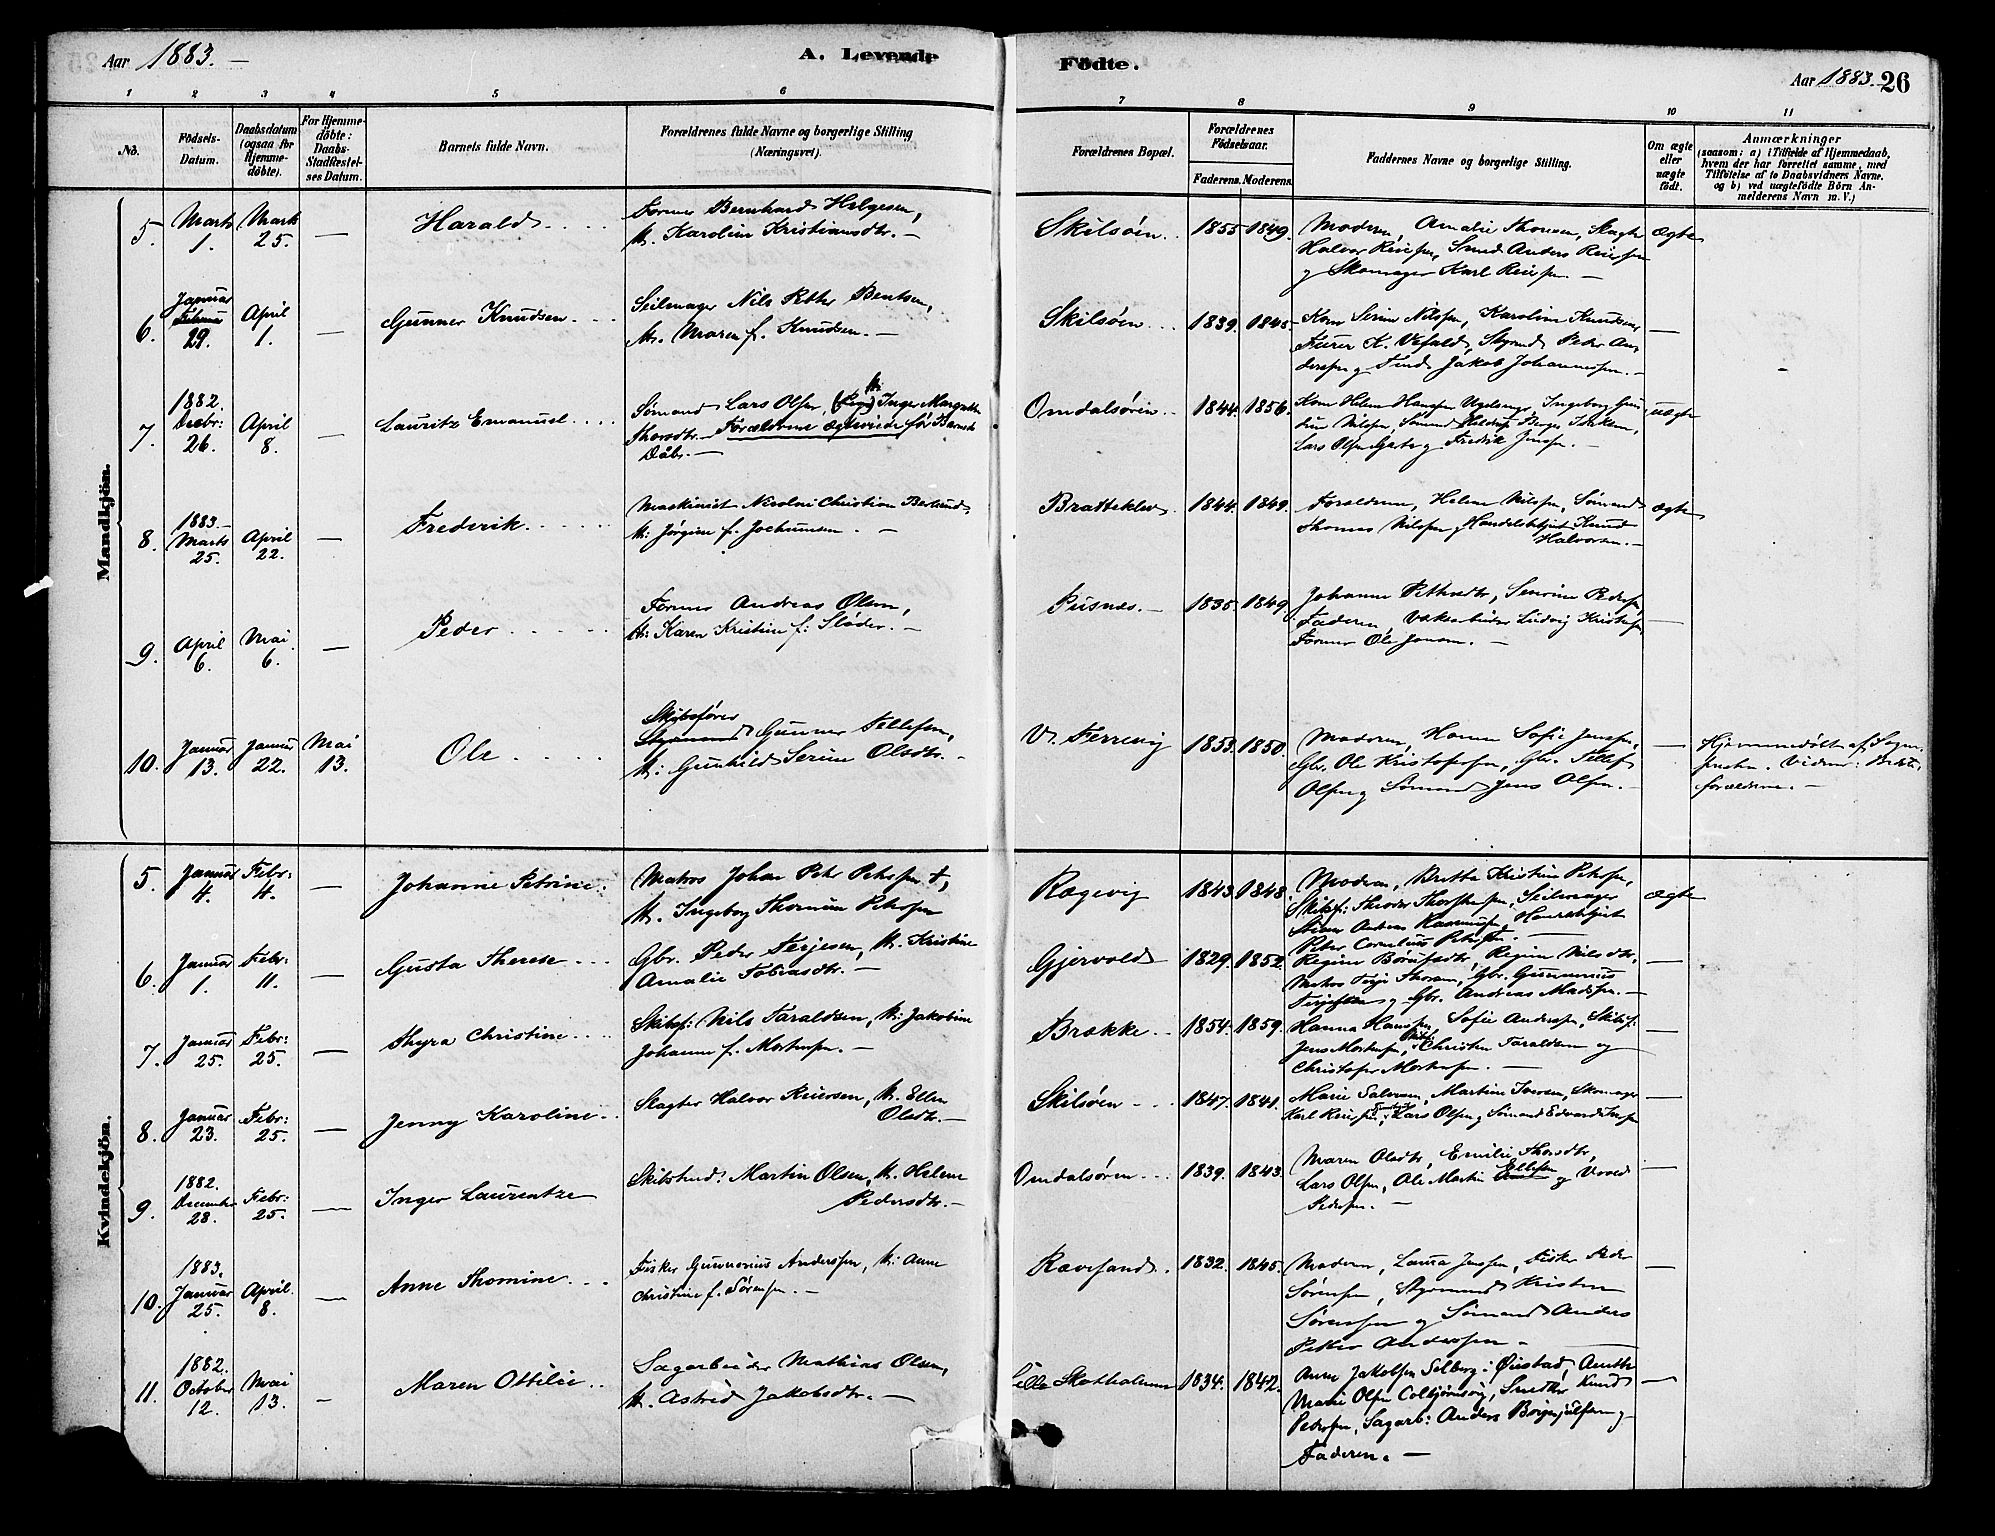 Aar 1883. —
A. Levende
Födte.
Aar 1883. 26
1 2 3 4 5 6 7 8 9 10 11
No.
Födsels-Datum.
Daabsdatum (ogsaa for Hjemme-döbte).
For Hjemme-döbte: Daabs-Stadfestel-ses Datum.
Barnets fulde Navn.
Forældrenes fulde Navne og borgerlige Stilling
(Næringsvei).
Forældrenes Bopæl.
Forældrenes Födselsaar.
Faderens. Moderens.
Faddernes Navne og borgerlige Stilling.
Om ægte eller uægte födt.
Anmærkninger
(saasom: a) i Tilfælde af Hjemmedaab,
hvem der har forrettet samme, med
Tilföielse af to Daabsvidners Navne.
og b) ved uægtefödte Börn An-
melderens Navn m. V.)
Mandkjön.
5. Marts 1. Marts 25. — Harald
Former Bernhard Helgesen,
H. Karoline Kristiansdtr. —
Skilsöen. 1855 1849.
Moderen, Amalie Thorsen, Slagter
Halvor Reiersen, Smed Anders Reiersen
og Skomager Karl Reiersen. —
Ægte
6. Januar 29. April 1. — Gunner Knudsen
Seilmager Nils Peter Bentsen,
H. Maren f. Knudsen. —
Skilsöen 1839. 1845.
Kone Serine Nilsen, Karoline Knudsen,
K. Vefald, Styrmd Peter An-
dersen og Jakob Johannessen. —
—
7. 1882. Decbr: 26. April 8. — Lauritz Emanuel
Sömand Lars Olsen, H: Inger Margrethe
Thorsdtr. Forældrene Ægteviede för Barnets
Daab. —
Omdalsören 1844. 1856.
Kone Helene Hansen Ingeborg
Nilsen, Sömand
Lars Olsen og Fredrik Jensen. —
uægte
8. 1883 — Marts 25. April 22. — Frederik
Maskinist Nicolai Christian Berlund
H: Jörgine f. Jochumsen. —
Bratteklev 1844. 1849.
Forældrene, Helene Nilsen, Sömand
Thomas Nilsen og Handelsbetjent Knud
Halvorsen. —
Ægte
9. April 6. Mai 6. — Peder
Former Andreas Olsen,
H: Karen Kristine f: Slöder. —
Pusnes. — 1835. 1849.
Johanne Pethredtr, Severine Pedersen,
Faderen, Ludvig Kristofersen,
Former Ole Jensen. —
—
10. Januar 13. Januar 22. Mai 13. Ole
Skibsförer
Styrmand Gunner Tellefsen,
H: Gunhild Serine Olsdtr. —
V. Terrevig 1853. 1850.
Moderen, Hanne Sofie Jensen,
Gbr. Ole Kristofersen, Gbr. Tellef
Olsen og Sömand Jens Olsen. —
—
Hjemmedöbt af Sogne-
presten. Vidner: Bedste-
forældrene. —
Kvindekjön.
5. Januar 4. Febr: 4. — Johanne Petrine.
Matros Johan Peter Petersen †,
H. Ingeborg Thomine Petersen
Rægevig 1843. 1848.
Moderen, Kristine Petersen,
Skibsf: Theodor Thorstensen, Seilmager
Andreas Handelsbetjent
Peter Cornelius Petersen. —
Ægte
6. Januar 1. Febr: 11. — Gusta Therese
Gbr. Peder Terjesen, H. Kristine
Amalie Tobiasdtr. —
Gjervold 1829. 1852.
Regine Regine Nilsdtr,
Matros Terje Thorsen, Gbr. Gunnenius
Terjesen og Gbr. Andreas Madsen. —
—
7. Januar 25. Febr: 25. — Thyra Christine
Skibsf: Nils Taraldsen, H: Jakobine
Johanne f. Mortensen. —
Brække 1854. 1859.
Hanna Hansen, Sofie Andersen, Skibsf:
Jens Mortensen, Christen Taraldsen og
Christofer Mortensen. —
—
8. Januar 23. Febr: 25. — Jenny Karoline
Slagter Halvor Reiersen, H. Ellen
Olsdtr. —
Skilsöen 1847. 1841.
Marie Salvesen, Martine Iversen, Skomager
Karl Reiersen, Lars Olsen og Sömand Edvard
—
9. 1882. December 28. Febr: 25. — Inger Laurentze
Martin Olsen, H. Helene
Pedersdtr. —
Omdalsören 1839. 1843.
Maren Olsdtr, Emilie Thorsdtr,
Lars Olsen, Ole Martin Ellefsen og
Pedersen. —
—
10. 1883. Januar 25. April 8. — Anne Thomine
Fisker Gunnenius Anderssen, H: Anne
Christine f. Sörensen. —
Rævesand. 1832. 1845.
Moderen, Laura Jensen, Fisker Peder
Sörensen, Styrmand Kristen
Sörensen og Sömand Anders
Petter Anderssen. —
—
11. 1882. October 12. Mai 13. — Maren Ottilie
Sagarbeider Mathias Olsen,
H. Astrid Jakobsdtr. —
Lille Skotholmen 1834. 1842.
Anne Jakobsen Selberg i Öiestad,
Marie Olsen Colbjörnsvig, Knud
Petersen, Sagarb: Anders og
Faderen. —
—